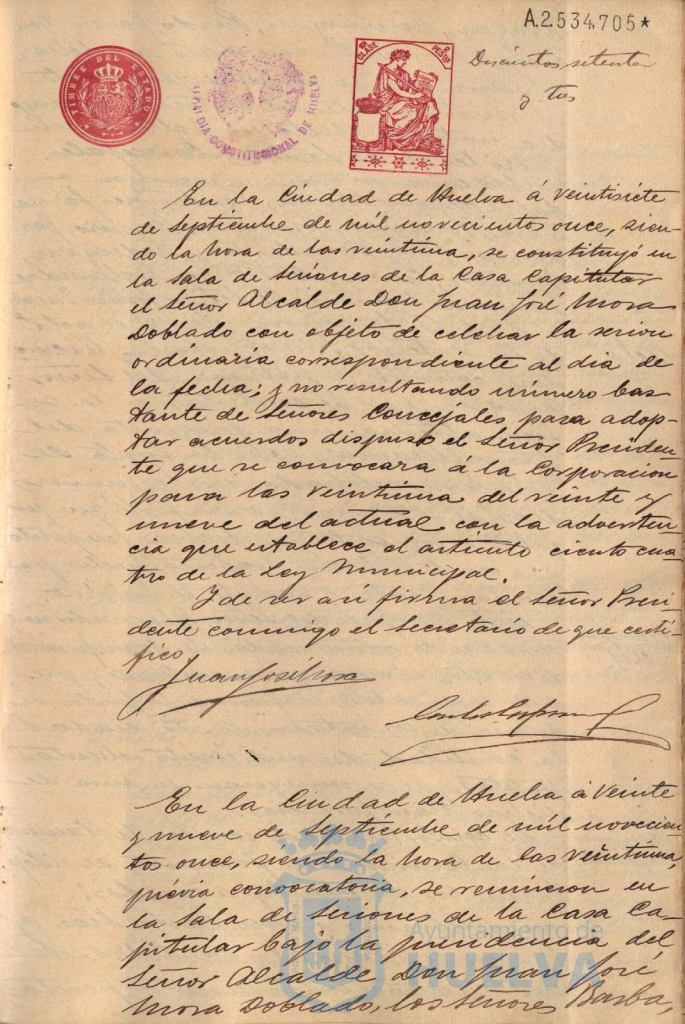 A.2.534.705*
TIMBRE DEL ESTADO
ALCALDIA CONSTITUCIONAL DE HUELVA
CLASE
PESETAS
Doscientos setenta
y tres
En la Ciudad de Huelva á veintisiete
de Septiembre de mil novecientos once, sien-
do la hora de las veintiuna, se constituyó en
la Sala de Sesiones de la Casa Capitular
el Señor Alcalde Don Juan José Mora
Doblado con objeto de celebrar la sesion
ordinaria correspondiente al dia de
la fecha; y no resultando número bas
tante de Señores Concejales para adop-
tar acuerdos dispuso el Señor Presiden-
te que se convocara á la Corporacion
para las veintiuna del veinte y
nueve del actual con la adverten-
cia que establece el artículo ciento cua
tro de la Ley Municipal.
Y de ser asi firma el Señor Presi-
dente conmigo el Secretario de que certi-
fico
Juan José Mora
En la Ciudad de Huelva á veinte
y nueve de Septiembre de mil novecien-
tos once, siendo la hora de las veintiuna,
prévia convocatoria, se reunieron en
la Sala de Sesiones de la Casa Ca-
pitular bajo la presidencia del
Señor Alcalde Don Juan José
Mora Doblado, los Señores Barba,
Ayuntamiento de
HUELVA